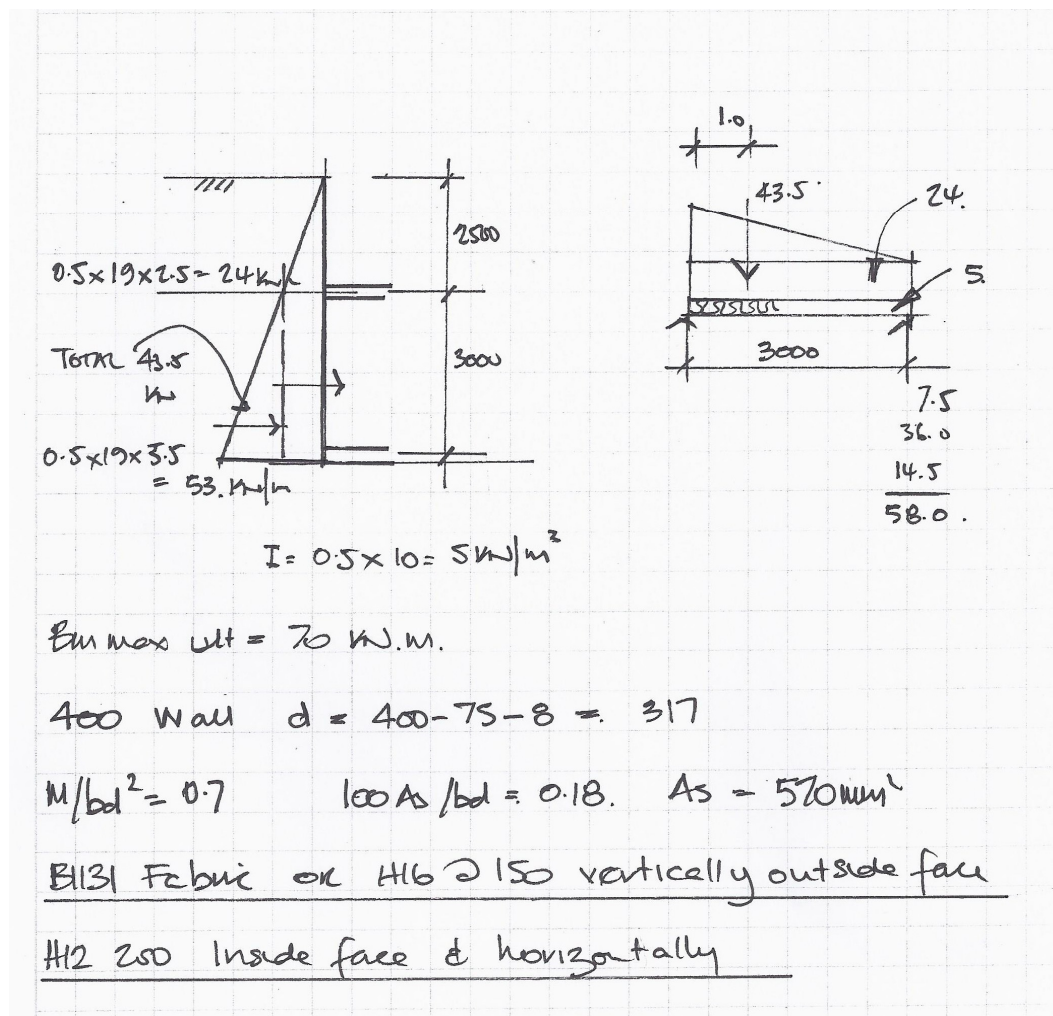 1.0
43.5
24.
2500
0.5×19×2.5 = 24 kN/m
5.
TOTAL 43.5
kN
3000
3000
7.5
36.0
14.5
58.0.
0.5×19×5.5
= 53. kN/m
I = 0.5 × 10 = 5 kN/m³
Bm max ult = 70 kN.m.
400 Wall d = 400-75-8 = 317
M/bd² = 0.7 100 As/bd = 0.18. As = 570mm²
B1131 Fabric or H16 @ 150 vertically outside face
H12 250 Inside face & horizontally